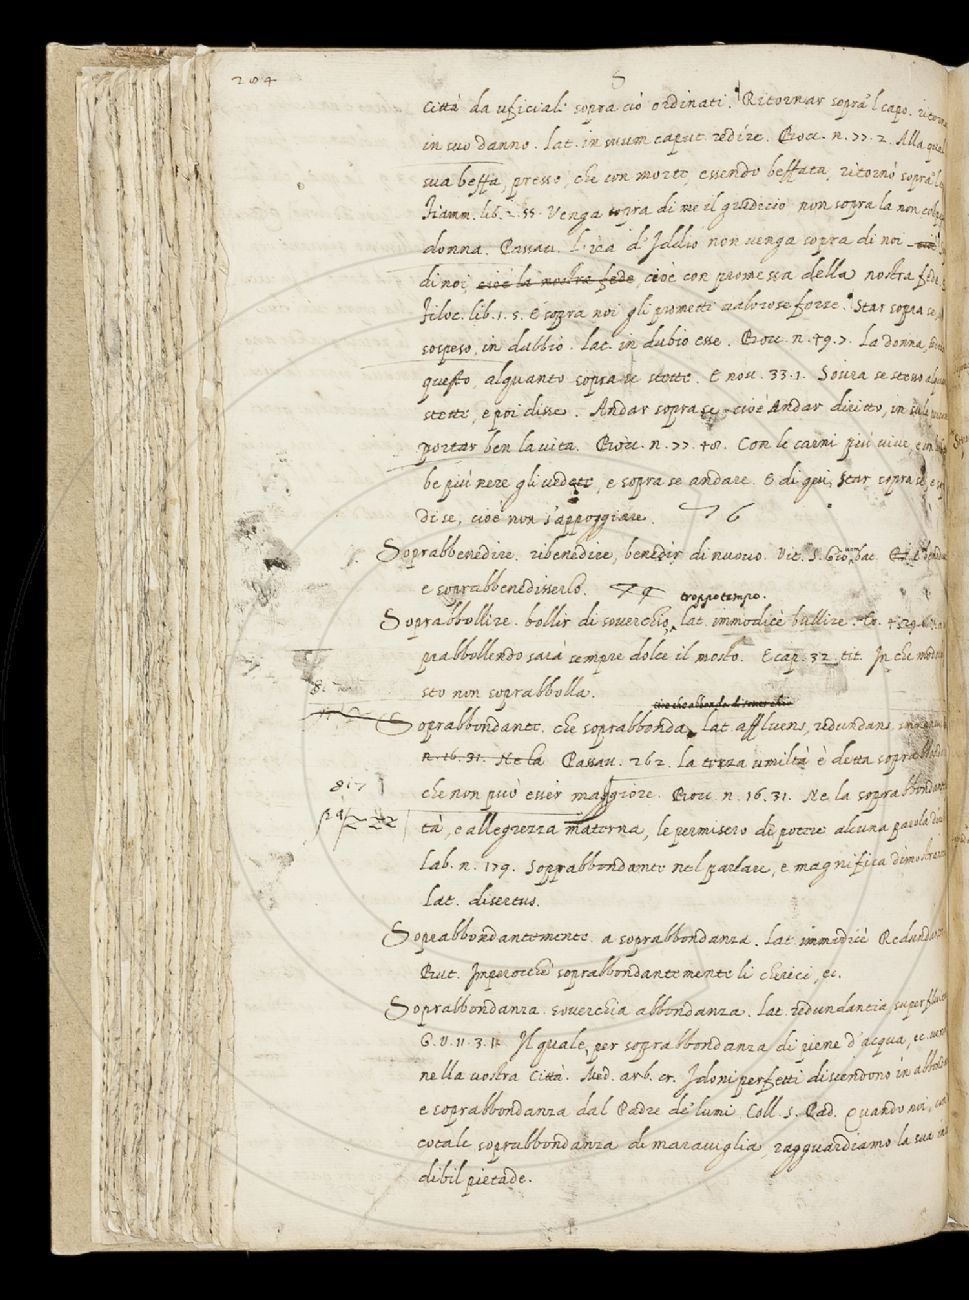 204
S
città da uficiali sopra ciò ordinati. Ritornar sopra 'l capo. ritorna
in suo danno. lat. in suum caput redire. Bocc. n. 77. 2. Alla qual
sua beffa, presso, che con morte, essendo beffata, ritornò sopra 'l
Fiamm. lib. 2. 55. Venga sopra di me il giudicio non sopra la non colp
donna. Passav. L'ira d'Iddio non venga sopra di noi
di noi, cioè la nostra fede, cioè con promessa della nostra fede.
Filoc. lib. 1. 5. E sopra noi gli prometti valorose forze. Star sopra se,
sospeso, in dubbio. lat. in dubio esse. Bocc. n. 49. 7. La donna,
questo, alquanto sopra se stette. E nov. 33. 1. Sovra se stesso al
stette, e poi disse. Andar sopra se, cioè Andar diritto, in su la
portar ben la vita. Bocc. n. 77. 48. Con le carni più vive, e con
be più nere gli vedete, e sopra se andare. E di qui, Star sopra se, e
di se, cioè non s'appoggiare. 76
Soprabbenedire. ribenedire, benedir di nuovo. Vit. S. Gio. bat.
e soprabbenedisserlo.
troppo tempo.
Soprabbollire. bollir di soverchio, lat. immodicè bullire. Cr. 4. 29.
prabbollendo sarà sempre dolce il mosto. E cap. 32. tit. In che modo
sto non soprabbolla.
cioè che abbonda di soverchio
Soprabbondante. che soprabbonda. lat. affluens, redundans
n. 16. 31. Ne la Passav. 262. La terza umiltà è detta soprabbond
817
che non può esser maggiore. Bocc. n. 16. 31. Ne la soprabbondante
tà, e allegrezza materna, le permisero di potere alcuna parola di
Lab. n. 179. Soprabbondante nel parlare, e magnifica dimostr
Lat. disertus.
Soprabbondantemente. a soprabbondanza. lat. immodicè Redundan
But. Imperocchè soprabbondantemente li cherici, ec.
Soprabbondanza. soverchia abbondanza. lat. redundantia, superflui
G. V. 11. 3. 11. Il quale, per soprabbondanza di piene d'acqua, ec.
nella vostra Città. Med. arb. cr. I doni perfetti discendono in abbond
e soprabbondanza dal Padre de' lumi. Coll. S. Pad. Quando noi, con
cotale soprabbondanza di maraviglia, ragguardiamo la sua
dibil pietade.